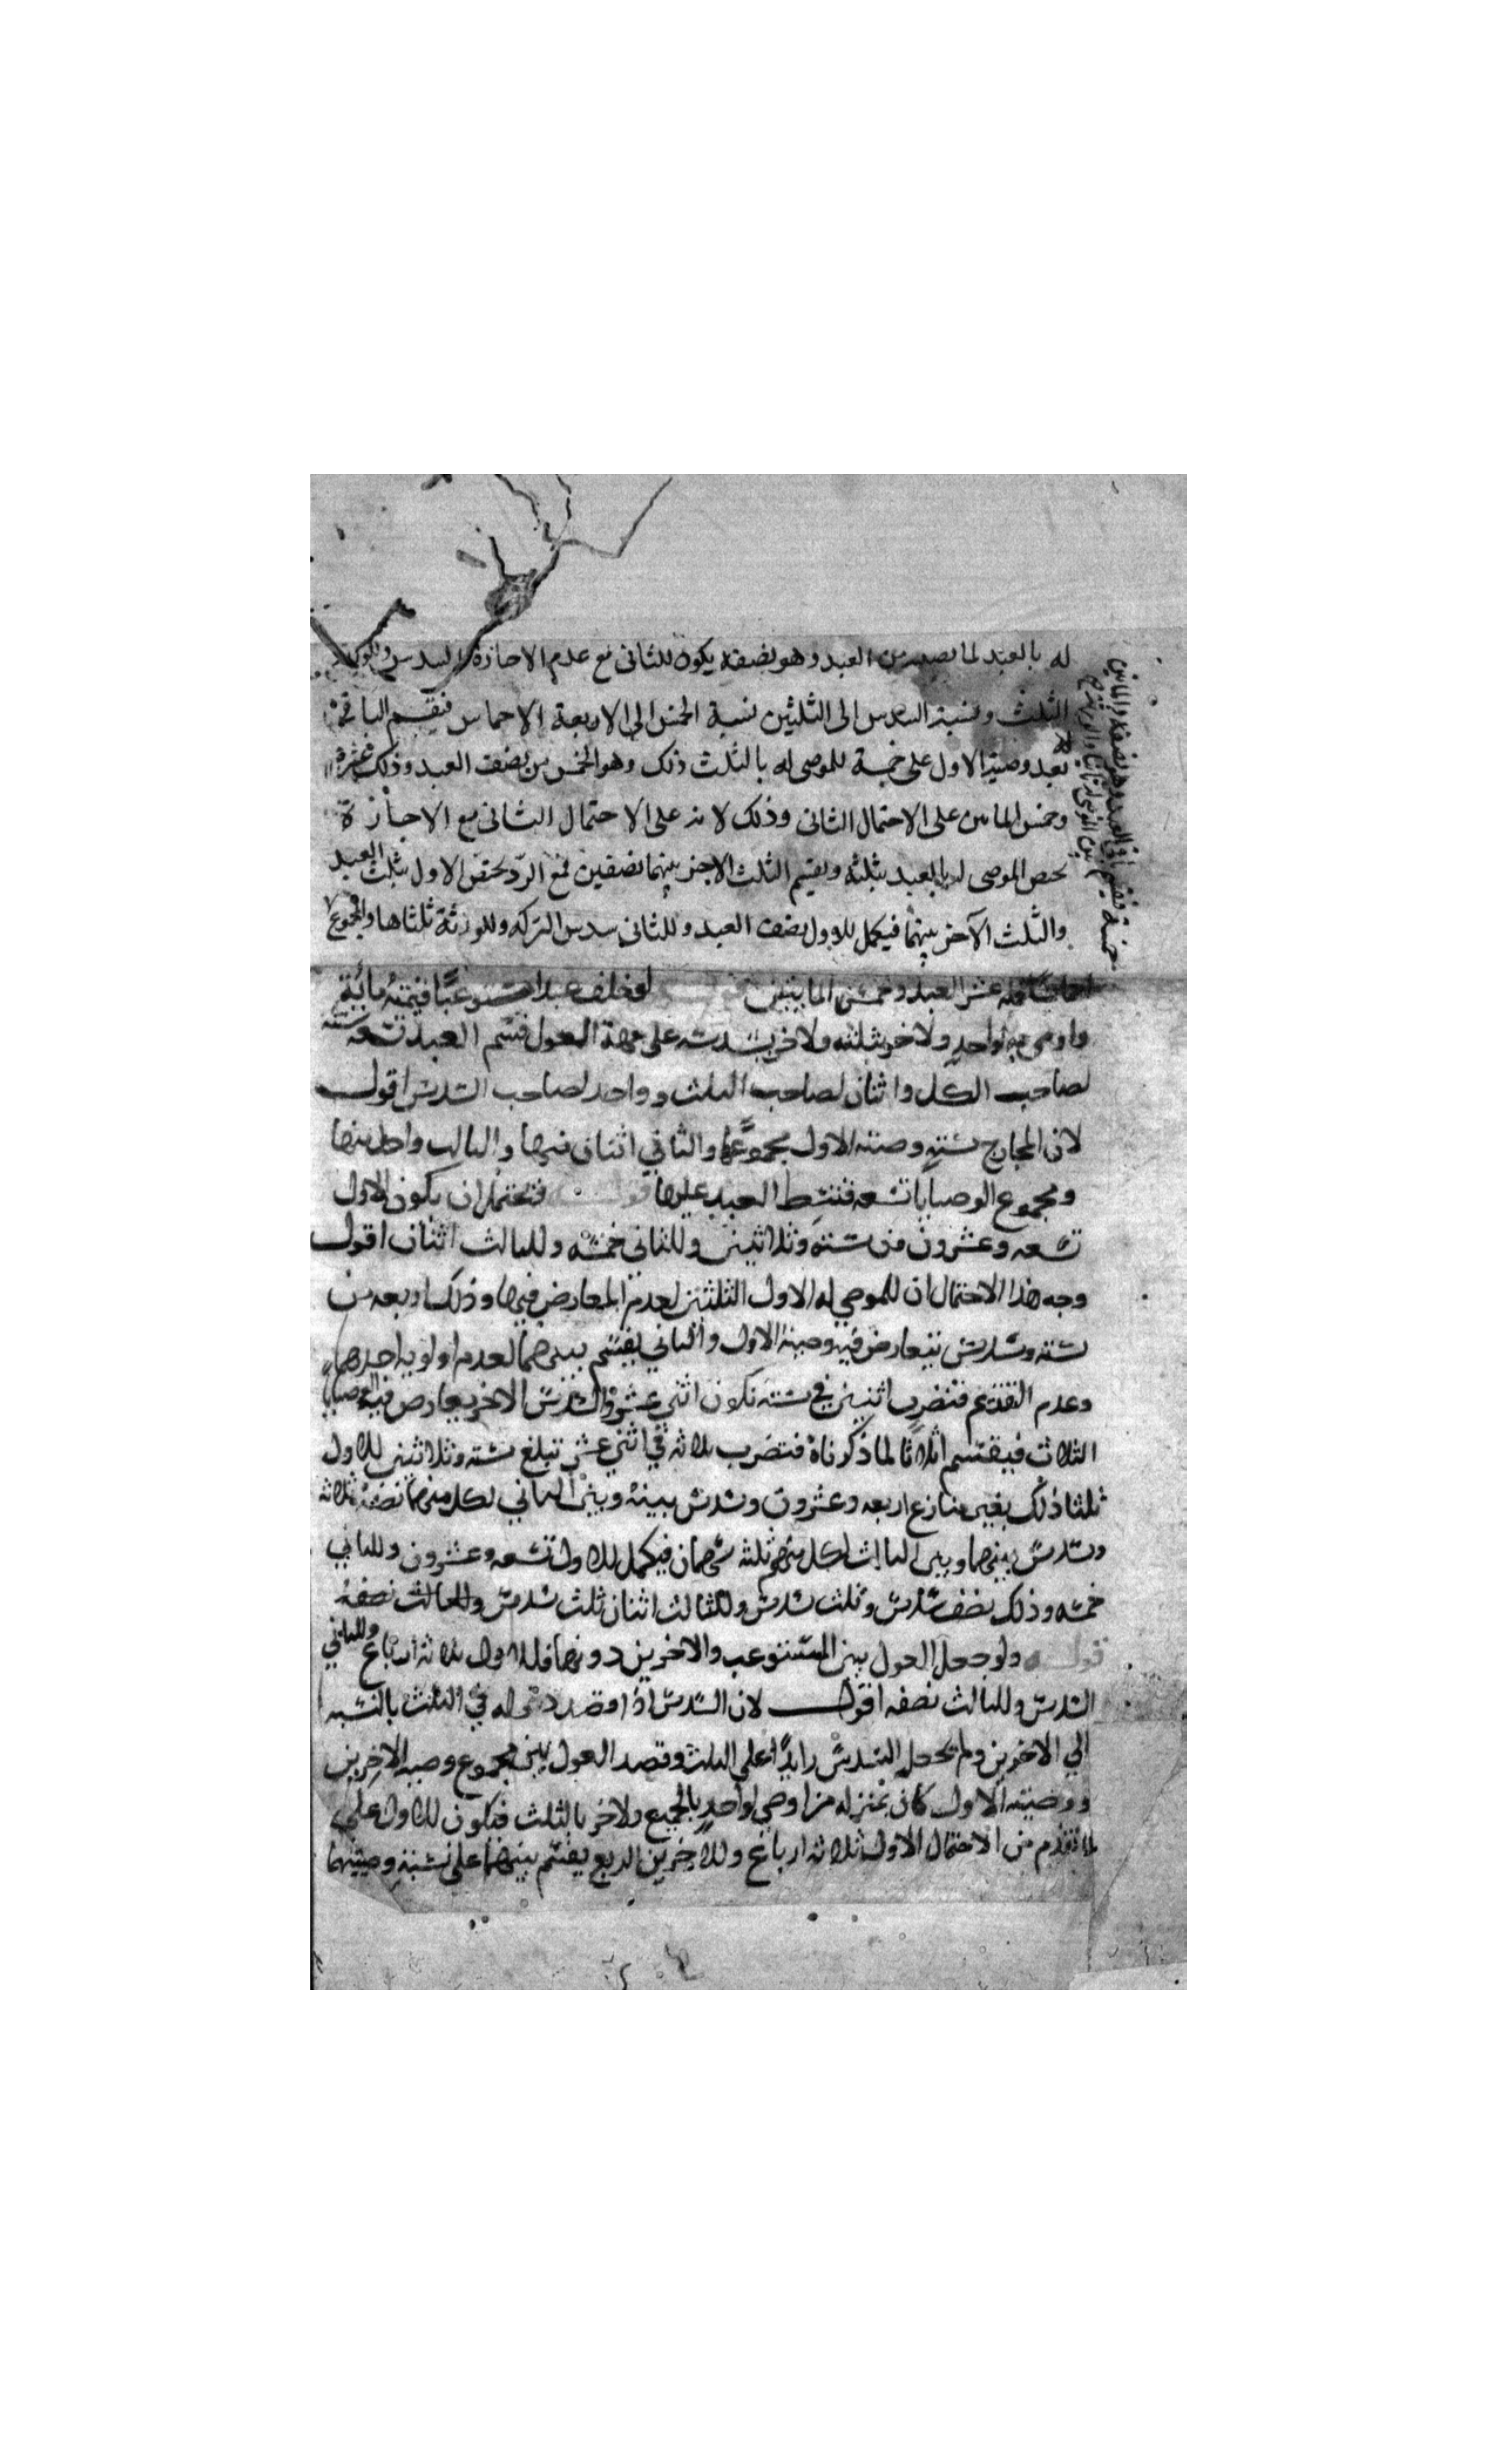 له بالعبد لما نصيبه من العبد وهو نصفه يكون للثانى مع عدم الاجازة السدس
الثلث ونسبة السدس الى الثلثين نسبة الخمس الى الاربعة الاخماس فيقسم الباقى
بعد وصية الاول على خمسة للموصى له بالثلث ذلك وهو الخمس من نصف العبد وذلك عشره
وخمس الماتين على الاحتمال الثانى وذلك لانه على الاحتمال الثانى مع الاجازة
يختص الموصى له بالعبد بثلثه ويقسم الثلث الاخر بينهما نصفين فمع الرد يختص الاول بثلث العبد
والثلث الآخر بينهما فيكمل للاول نصف العبد وللثانى سدس التركه وللورثة ثلثاها والمجموع
عشر العبد وخمس الماييتين لو خلف عبدا مستوعبا قيمته مائية
واوصى به لواحد ولاخر بثلثه ولاخر بسدسه على جهة العول قسم العبد تسعه ستته
لصاحب الكل واثنان لصاحب الثلث وواحد لصاحب السدس اقول
لان المخارج ستة وصيته الاول مجموعها والثاني اثنان منها والثالث واحد منها
ومجموع الوصايا تسعه فتبسط العبد عليها قوله فتحتمل ان يكون للاول
تسعه وعشرون من ستة وثلاثين وللثانى خمسه وللثالث اثنان اقول
وجه هذا الاحتمال ان للموصي له الاول الثلثين لعدم المعارض فيها وذلك اربعه من
سته وسدس يتعارض فيه وصية الاول والثاني يقسم بينهما لعدم اولويه احدهما
وعدم التقديم فنضرب اثنين في سته تكون اثني عشر والسدس الاخر يعارض فيه الوصايا
الثلاث فيقتسم اثلاثا لما ذكرناه فتضرب ثلاثه في اثني عشر تبلغ سته وثلاثين للاول
ثلثا ذلك بغير منازع اربعه وعشرون وسدس بينه وبين الثاني لكل منهما نصفه ثلاثه
وسدس بينهما وبين الثالث لكل منهم ثلثه سهمان فيكمل للاول تسعه وعشرون وللثاني
خمسه وذلك نصف سدس وثلث سدس وللثالث اثنان ثلث سدس وللثالث نصفه
قوله ولو جعل العول بين المستوعب والاخرين دونهما فللاول ثلاثه ارباع وللثاني
السدس وللثالث نصفه اقول لان السدس اذا وقصد دخوله في الثلث بالنسبه
الي الاخرين ولم يجعل السدس زايدا على الثلث وقصد العول بين مجموع وصيه الاخرين
ووصيته الاول كان بمنزله من اوصى لواحد بالجميع ولاخر بالثلث فيكون للاول علي
ما تقدم من الاحتمال الاول ثلاثه ارباع وللاخرين الربع يقسم بينهما على نسبة وصيتهما